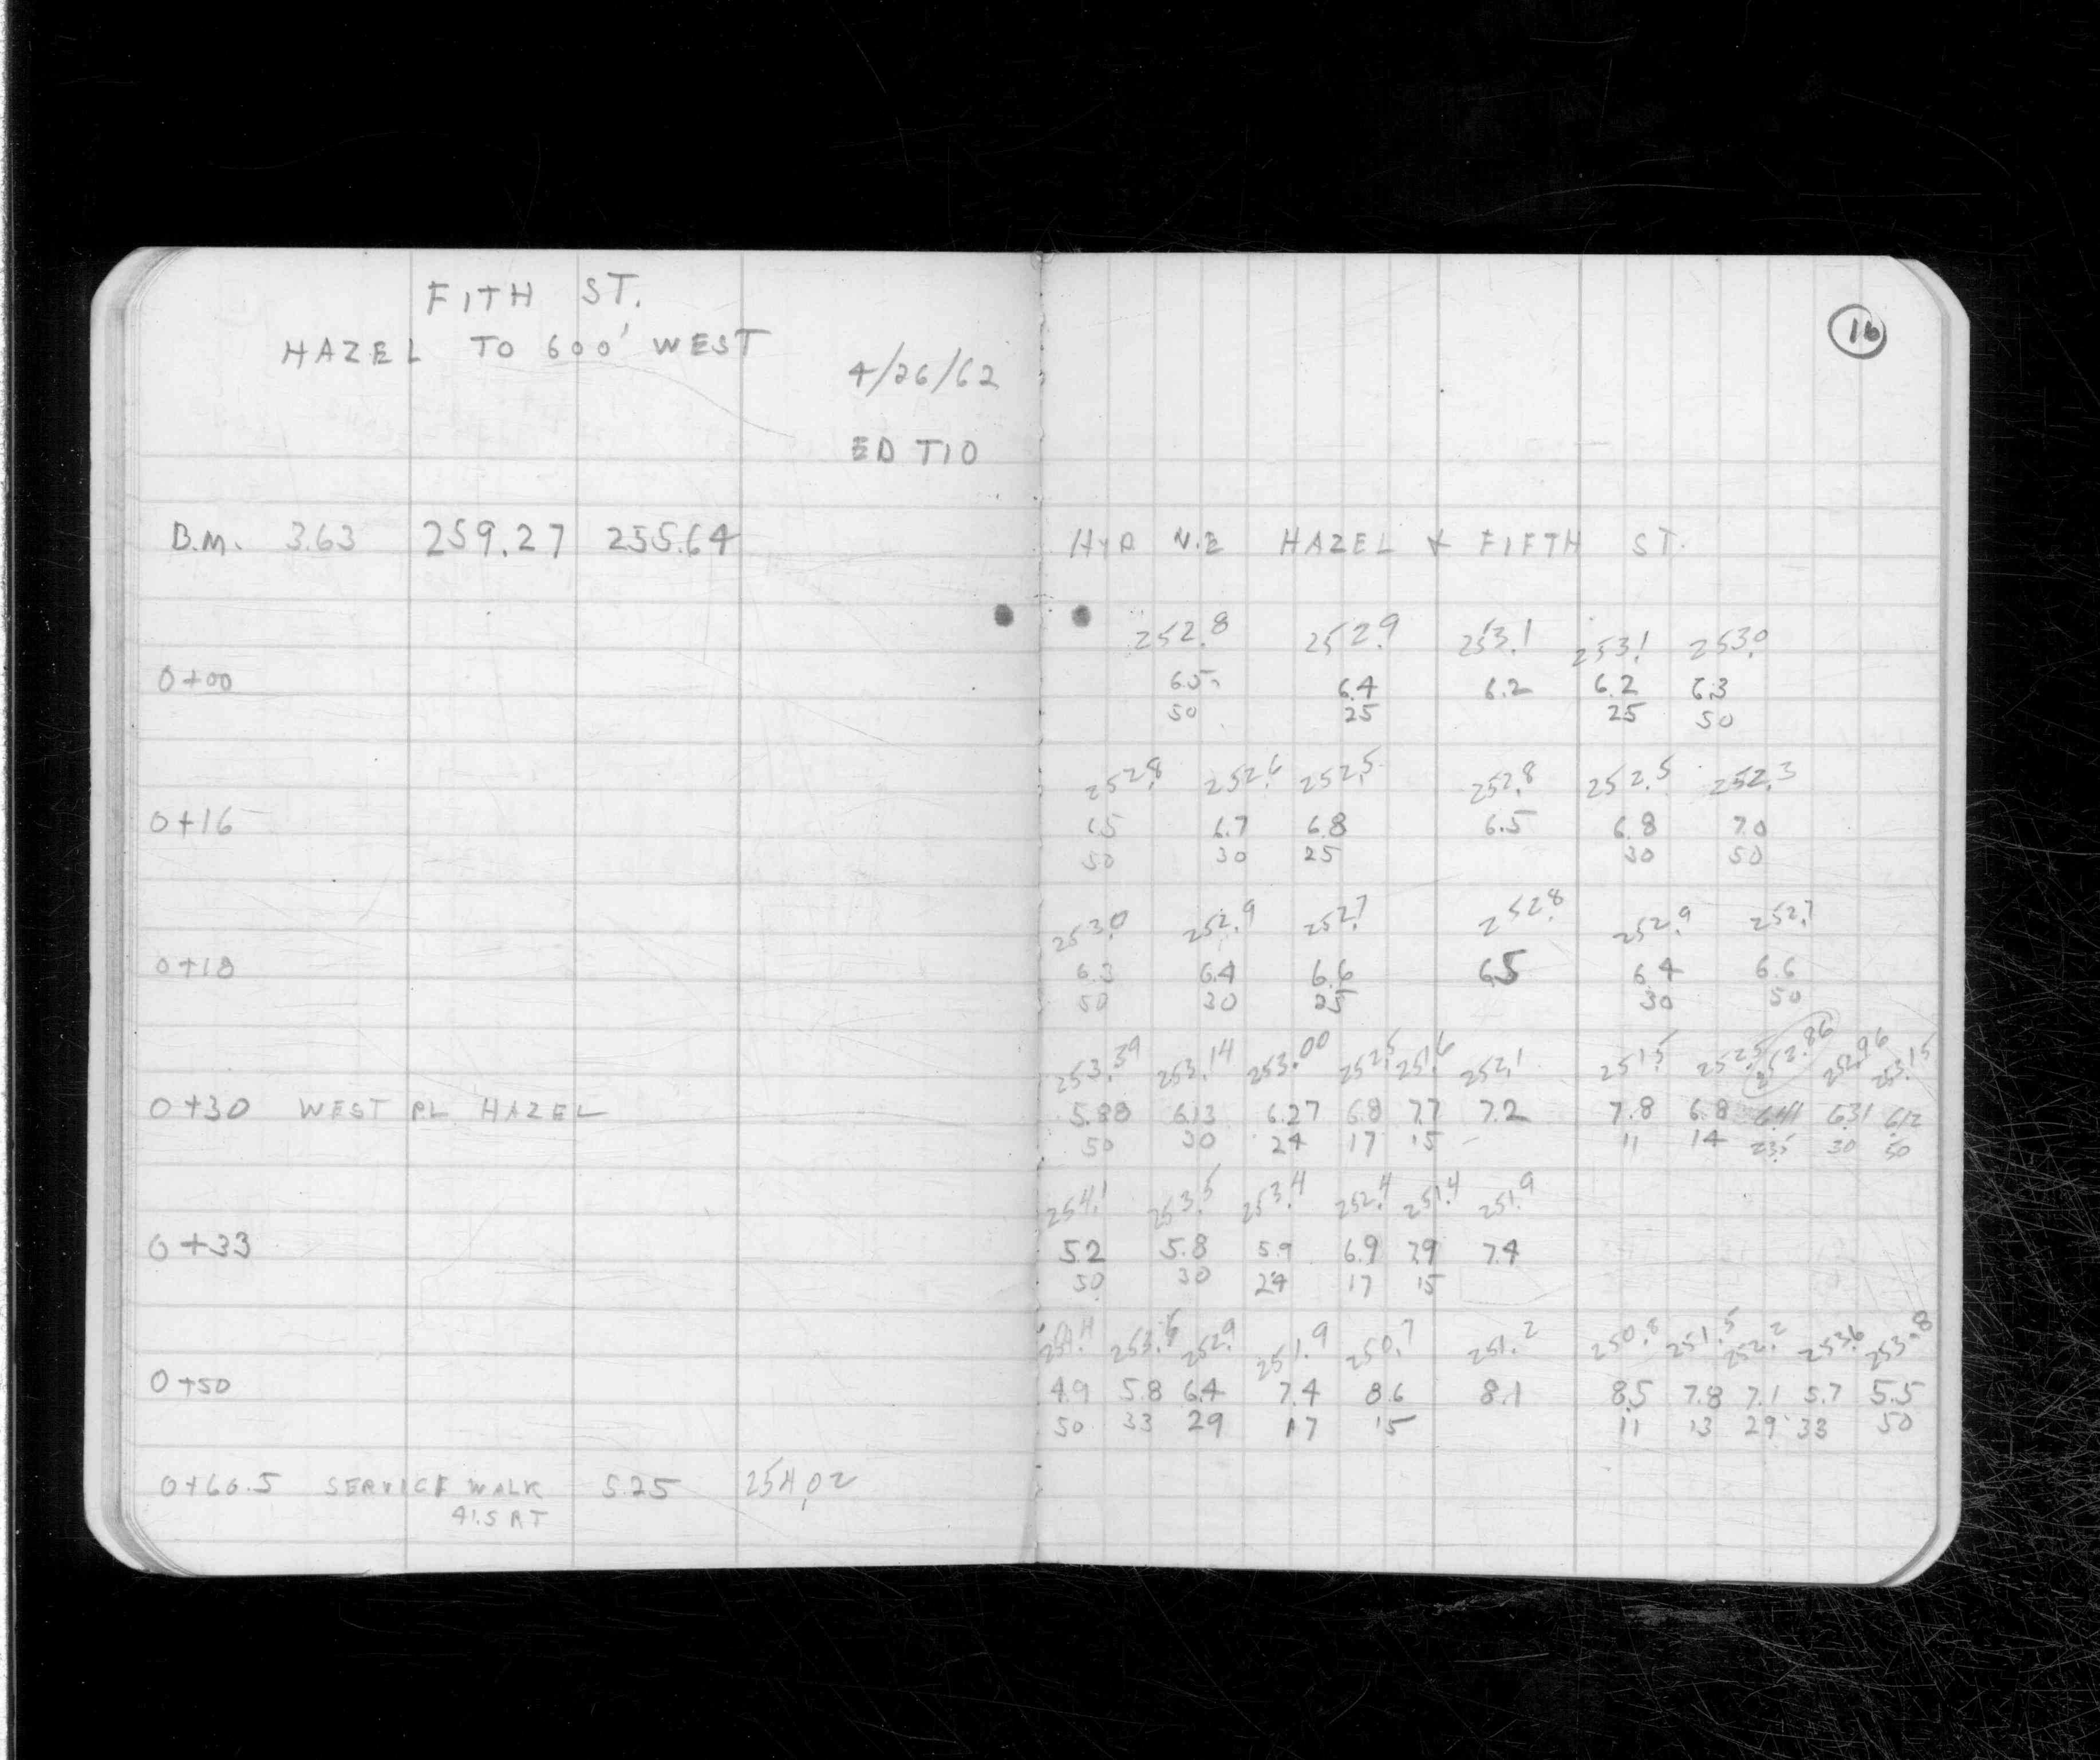 FITH ST.
HAZEL TO 600' WEST
4/26/62
ED TIO
B.M. 3.63 259.27 255.64
0+00
0+16
0+18
0+30 WEST PL HAZEL
0+33
0+50
0+60.5 SERVICE WALK 5.25 254.02
41.5 RT
16
HYD N.E HAZEL & FIFTH ST.
252.8 252.9 253.1 253.1 253.0
6.5 6.4 6.2 6.2 6.3
50 25 25 50
252.8 252.6 252.5 252.8 252.5 252.3
6.5 6.7 6.8 6.5 6.8 7.0
50 30 25 30 50
253.0 252.9 252.7 252.8 252.9 252.7
6.3 6.4 6.6 6.5 6.4 6.6
50 30 25 30 50
253.39 253.14 253.00 252.5 251.6 252.1 251.5 252.5 252.86 252.96 253.15
5.88 6.13 6.27 6.8 7.7 7.2 7.8 6.8 6.41 6.31 6.12
50 30 24 17 15 11 14 23.5 30 50
254.1 253.5 253.4 252.4 251.4 251.9
5.2 5.8 5.9 6.9 7.9 7.4
50 30 24 17 15
254.4 253.5 252.9 251.9 250.7 251.2 250.8 251.5 252.2 253.6 253.8
4.9 5.8 6.4 7.4 8.6 8.1 8.5 7.8 7.1 5.7 5.5
50 33 29 17 15 11 13 29 33 50